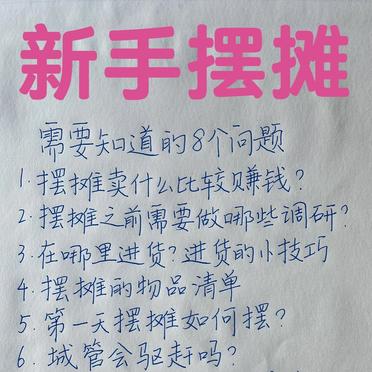 新手摆摊
需要知道的8个问题
1.摆摊卖什么比较赚钱?
2.摆摊之前需要做哪些调研?
3.在哪里进货?进货的小技巧
4.摆摊的物品清单
5.第一天摆摊如何摆?
6.城管会驱赶吗?